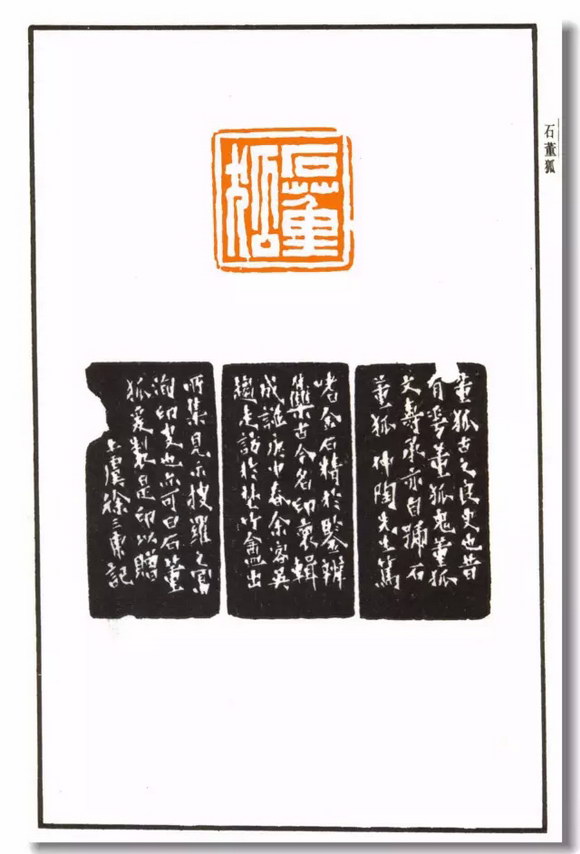 石董狐
石董狐
董狐古之良史也昔
有董狐鬼董狐
文壽承亦自號石
董狐仲陶先生篤
嗜金石精於鑒辨
集古今名印裒輯
成譜庚申春余客吳
趨走訪於埜竹盦出
所集見示搜羅之富
洵印史也亦可曰石董
狐爰製是印以贈
上虞徐三庚記